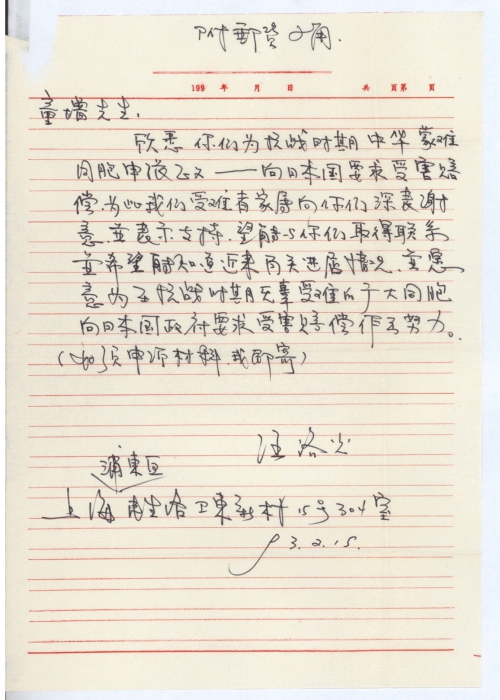 附邮资2角.
199 年 月 日 共 页第 页
童增先生,
欣悉你们为抗战时期中华蒙难
同胞申张正义——向日本国要求受害赔
偿.为此我们受难者家属向你们深表谢
意.並表示支持.望能与你们取得联系
並希望能知道近来有关进展情况.並愿
意为了抗战时期无辜受难的广大同胞
向日本国政府要求受害赔偿作出努力。
(如须申诉材料.或即寄)
汪洛
浦东区
上海 东新村15号304室
93.2.15.